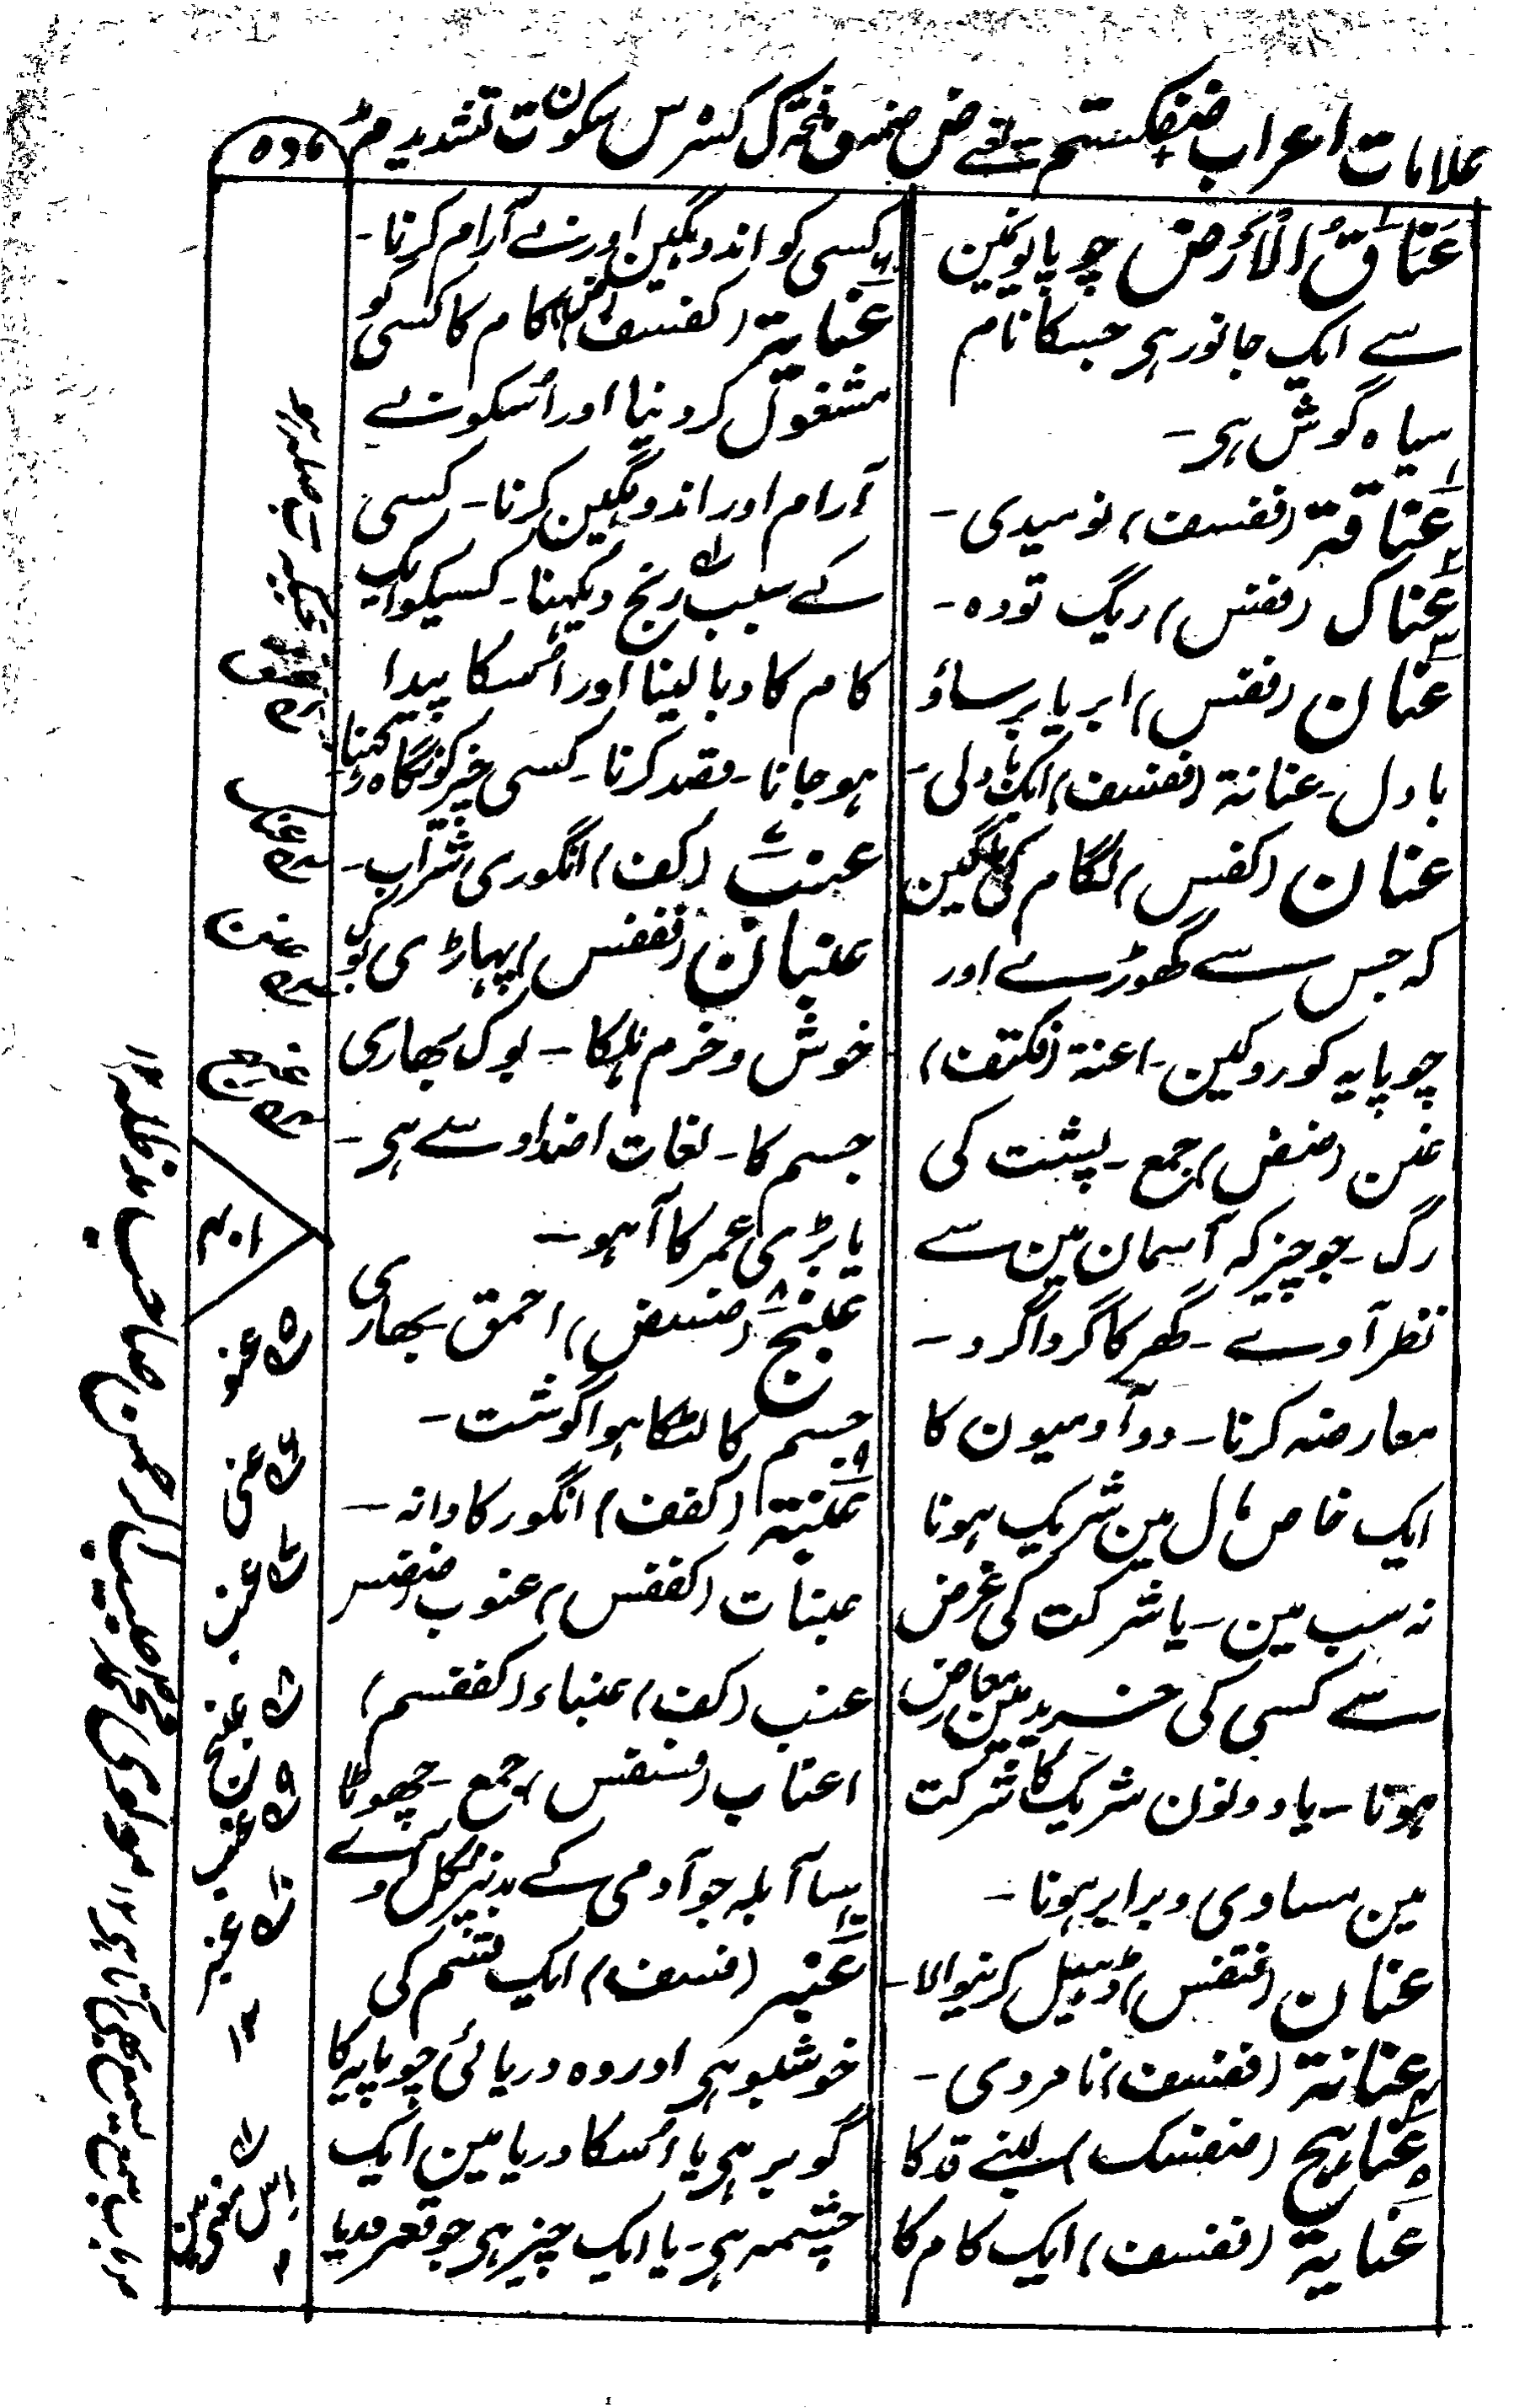 علامات اعراب ضفکستم یعنے ض ضمہ ف فتحہ ک کسرہ س سکون ت تشدید م مد
عَنَاقُ الْاَرْض چوپایونمین
سے ایک جانور ہی جسکا نام
سیاہ گوش ہی ۔
عناقۃ (ففسف) نومیدی ۔
عناک (ففس) ریگ تودہ ۔
عنان (ففس) ابر یا برساؤ
بادل ۔ عنانۃ (ففسف) ایک بادلی ۔
عنان (کفس) لگام کی باگین
کہ جس سے گھوڑے اور
چوپایہ کو روکین ۔ اعنۃ (فکتف)
عنن (ضض) جمع ۔ پشت کی
رگ ۔ جو چیز کہ آسمان مین سے
نظر آوے ۔ گھر کا گرداگرد ۔
معارضہ کرنا ۔ دو آدمیون کا
ایک خاص مال مین شریک ہونا
نہ سب مین ۔ یا شرکت کی غرض
سے کسی کی خرید مین معارض
ہونا ۔ یا دونون شریک کا شرکت
مین مساوی و برابر ہونا ۔
عنان (فتفس) ڈھیل کرنیوالا ۔
عنانۃ (ففسف) نامردی ۔
(ضفسک) لمبے قد کا
عنایۃ (ففسف) ایک کام کا
کسی کو اندوہگین اور بے آرام کرنا ۔
عنایۃ (کفسف) کام کا کسی کو
مشغول کر دینا اور اُسکو بے
آرام اور اندوہگین کرنا ۔ کسی
کے سبب رنج دیکھنا ۔ کسیکو ایک
کام کا دبا لینا اور اُسکا پیدا
ہو جانا ۔ قصد کرنا ۔ کسی چیز کو نگاہ رکھنا ۔
عنب (کف) انگوری شراب ۔
عنبان (فففس) پہاڑی بوک
خوش و خرم ہلکا ۔ بوک بھاری
جسم کا ۔ لغات اضداد سے ہی ۔
یا بڑی عمر کا آہو ۔
عنبج (ضسض) احمق ۔ بھاری
جسم کا لٹکا ہوا گوشت ۔
عنبۃ (کفف) انگور کا دانہ ۔
عنبات (کففس) عنوب
عنب (کف) عنباء (کففسم)
اعناب (فسفس) جمع ۔ چھوٹا
سا آبلہ جو آدمی کے بدنپر نکل آوے
عنبر (فسف) ایک قسم کی
خوشبو ہی اور وہ دریائی چوپایہ کا
گوبر ہی یا اُسکا دریا مین ایک
چشمہ ہی ۔ یا ایک چیز ہی جو قعر دریا
عنق
عنک
عنن
عنج
عنو
عنی
عنب
عنبج
عنب
عنبر
۱۲